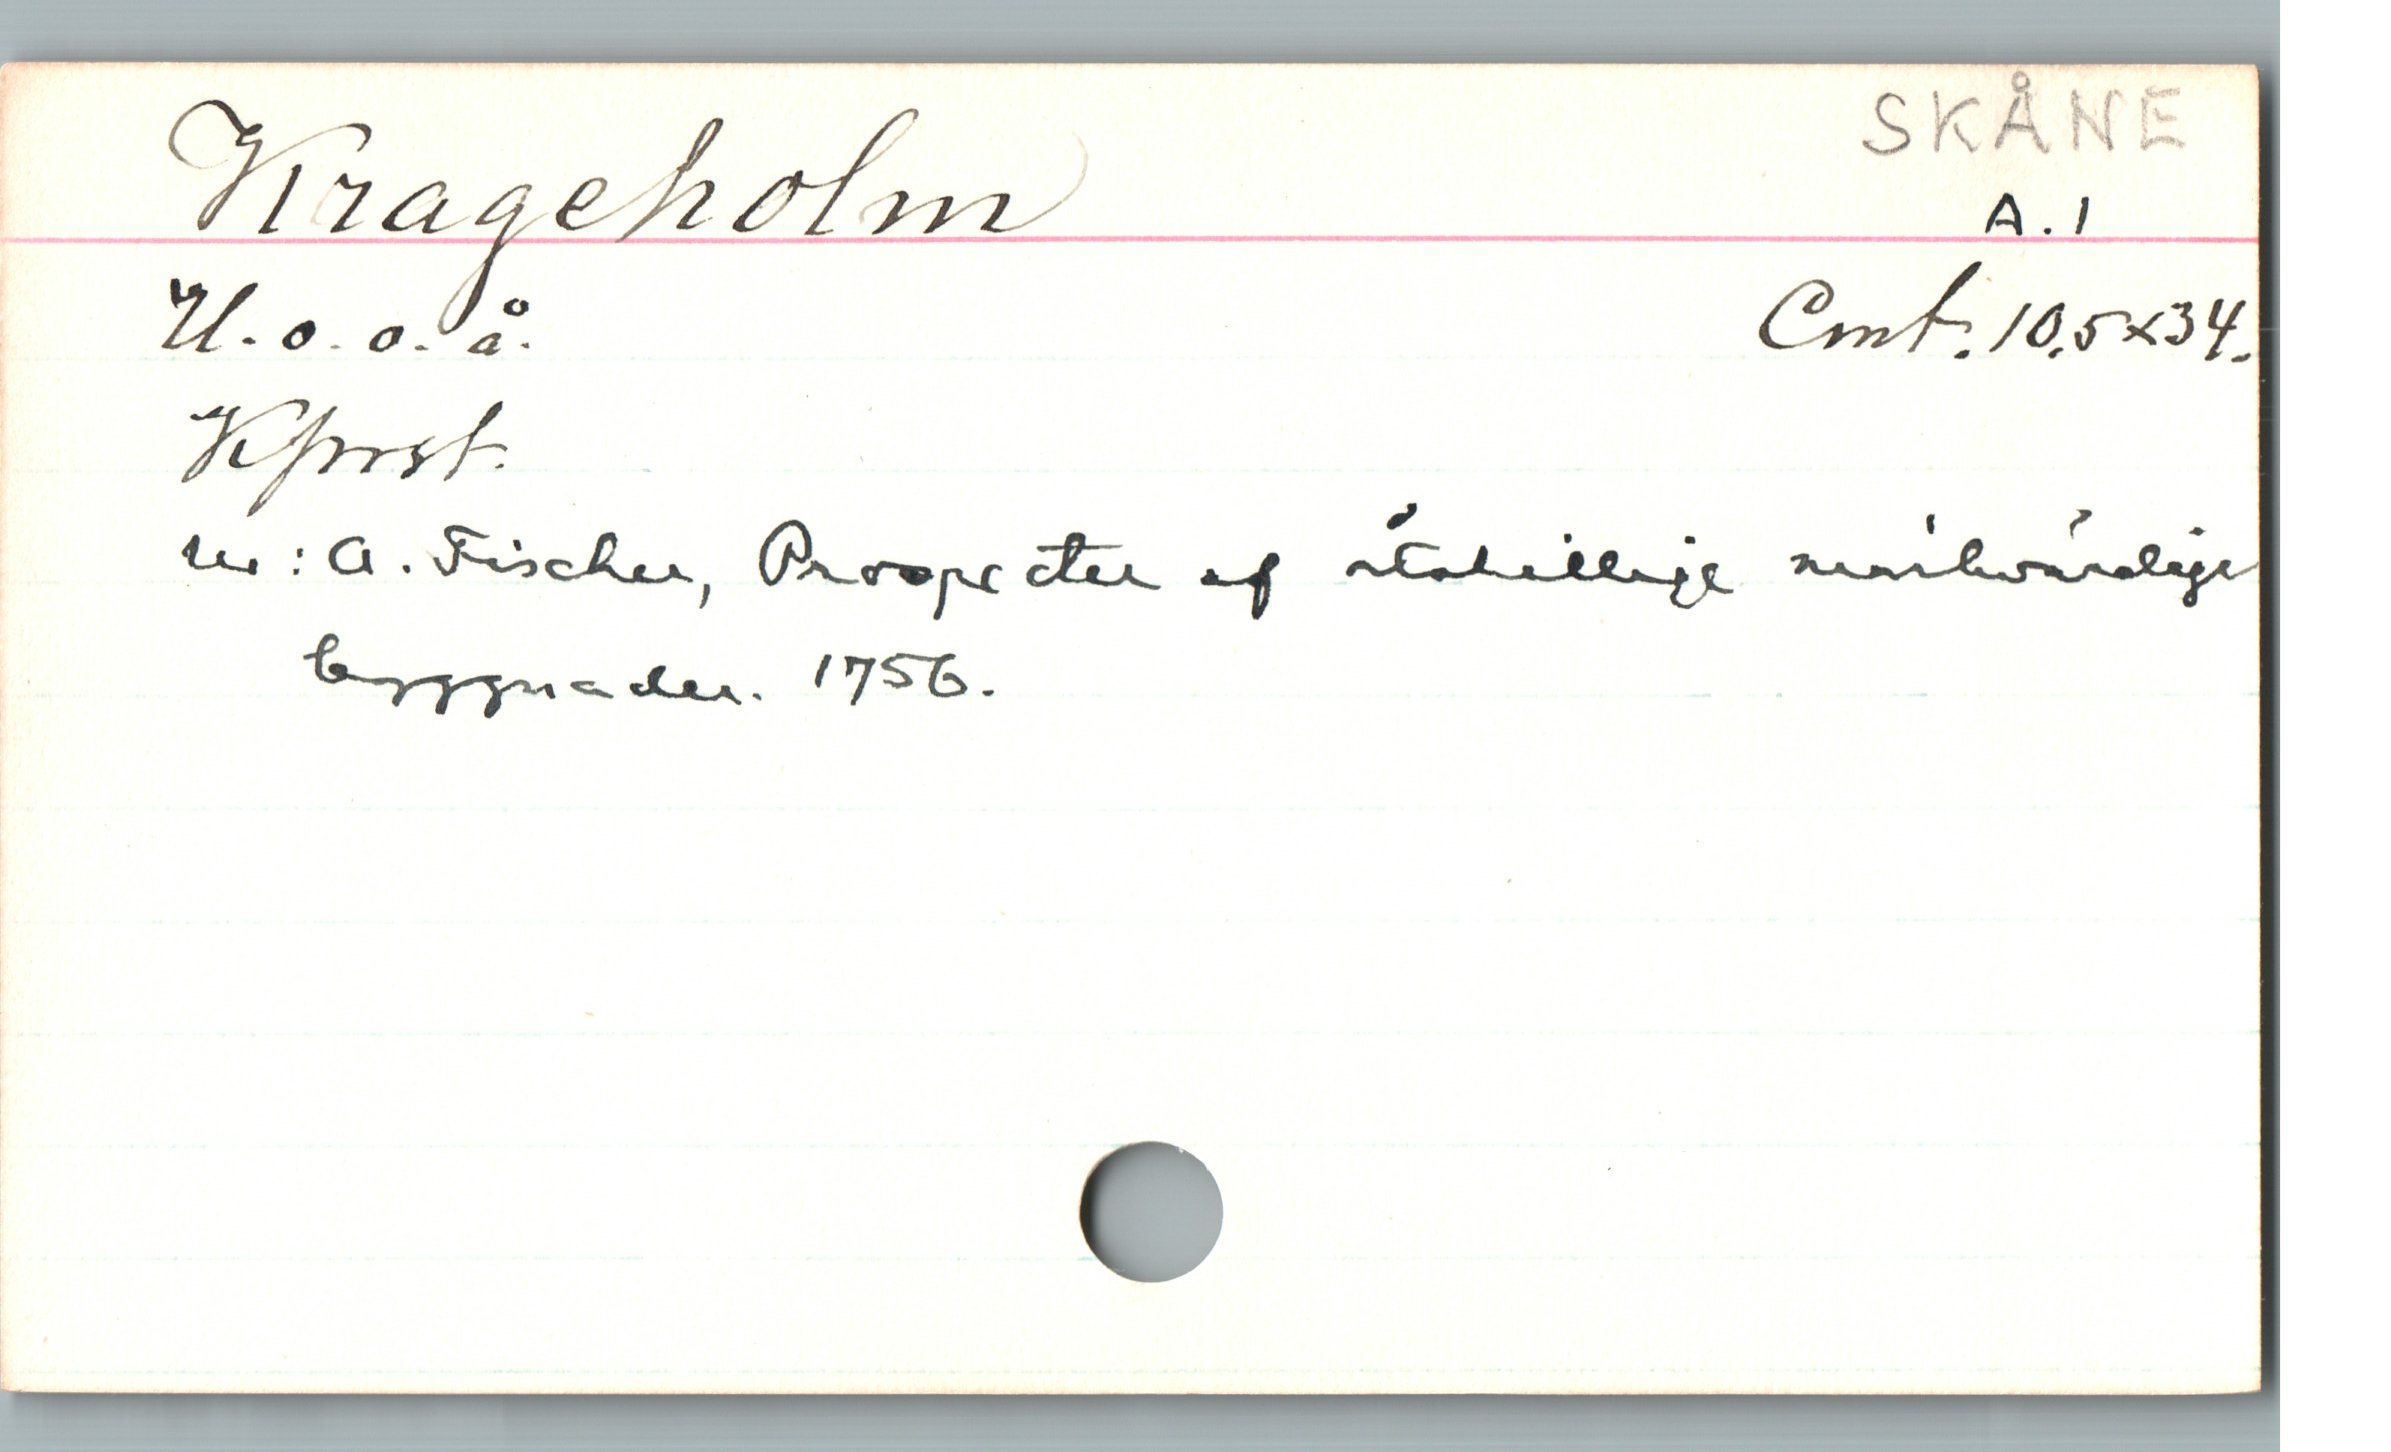 SKÅNE
Krageholm
A. 1
U. o. o. å.
Cmt. 10,5x34.
Kpprst.
ur: A. Fischer, Prospecter af åtskillige märkvärdige
byggnader. 1756.